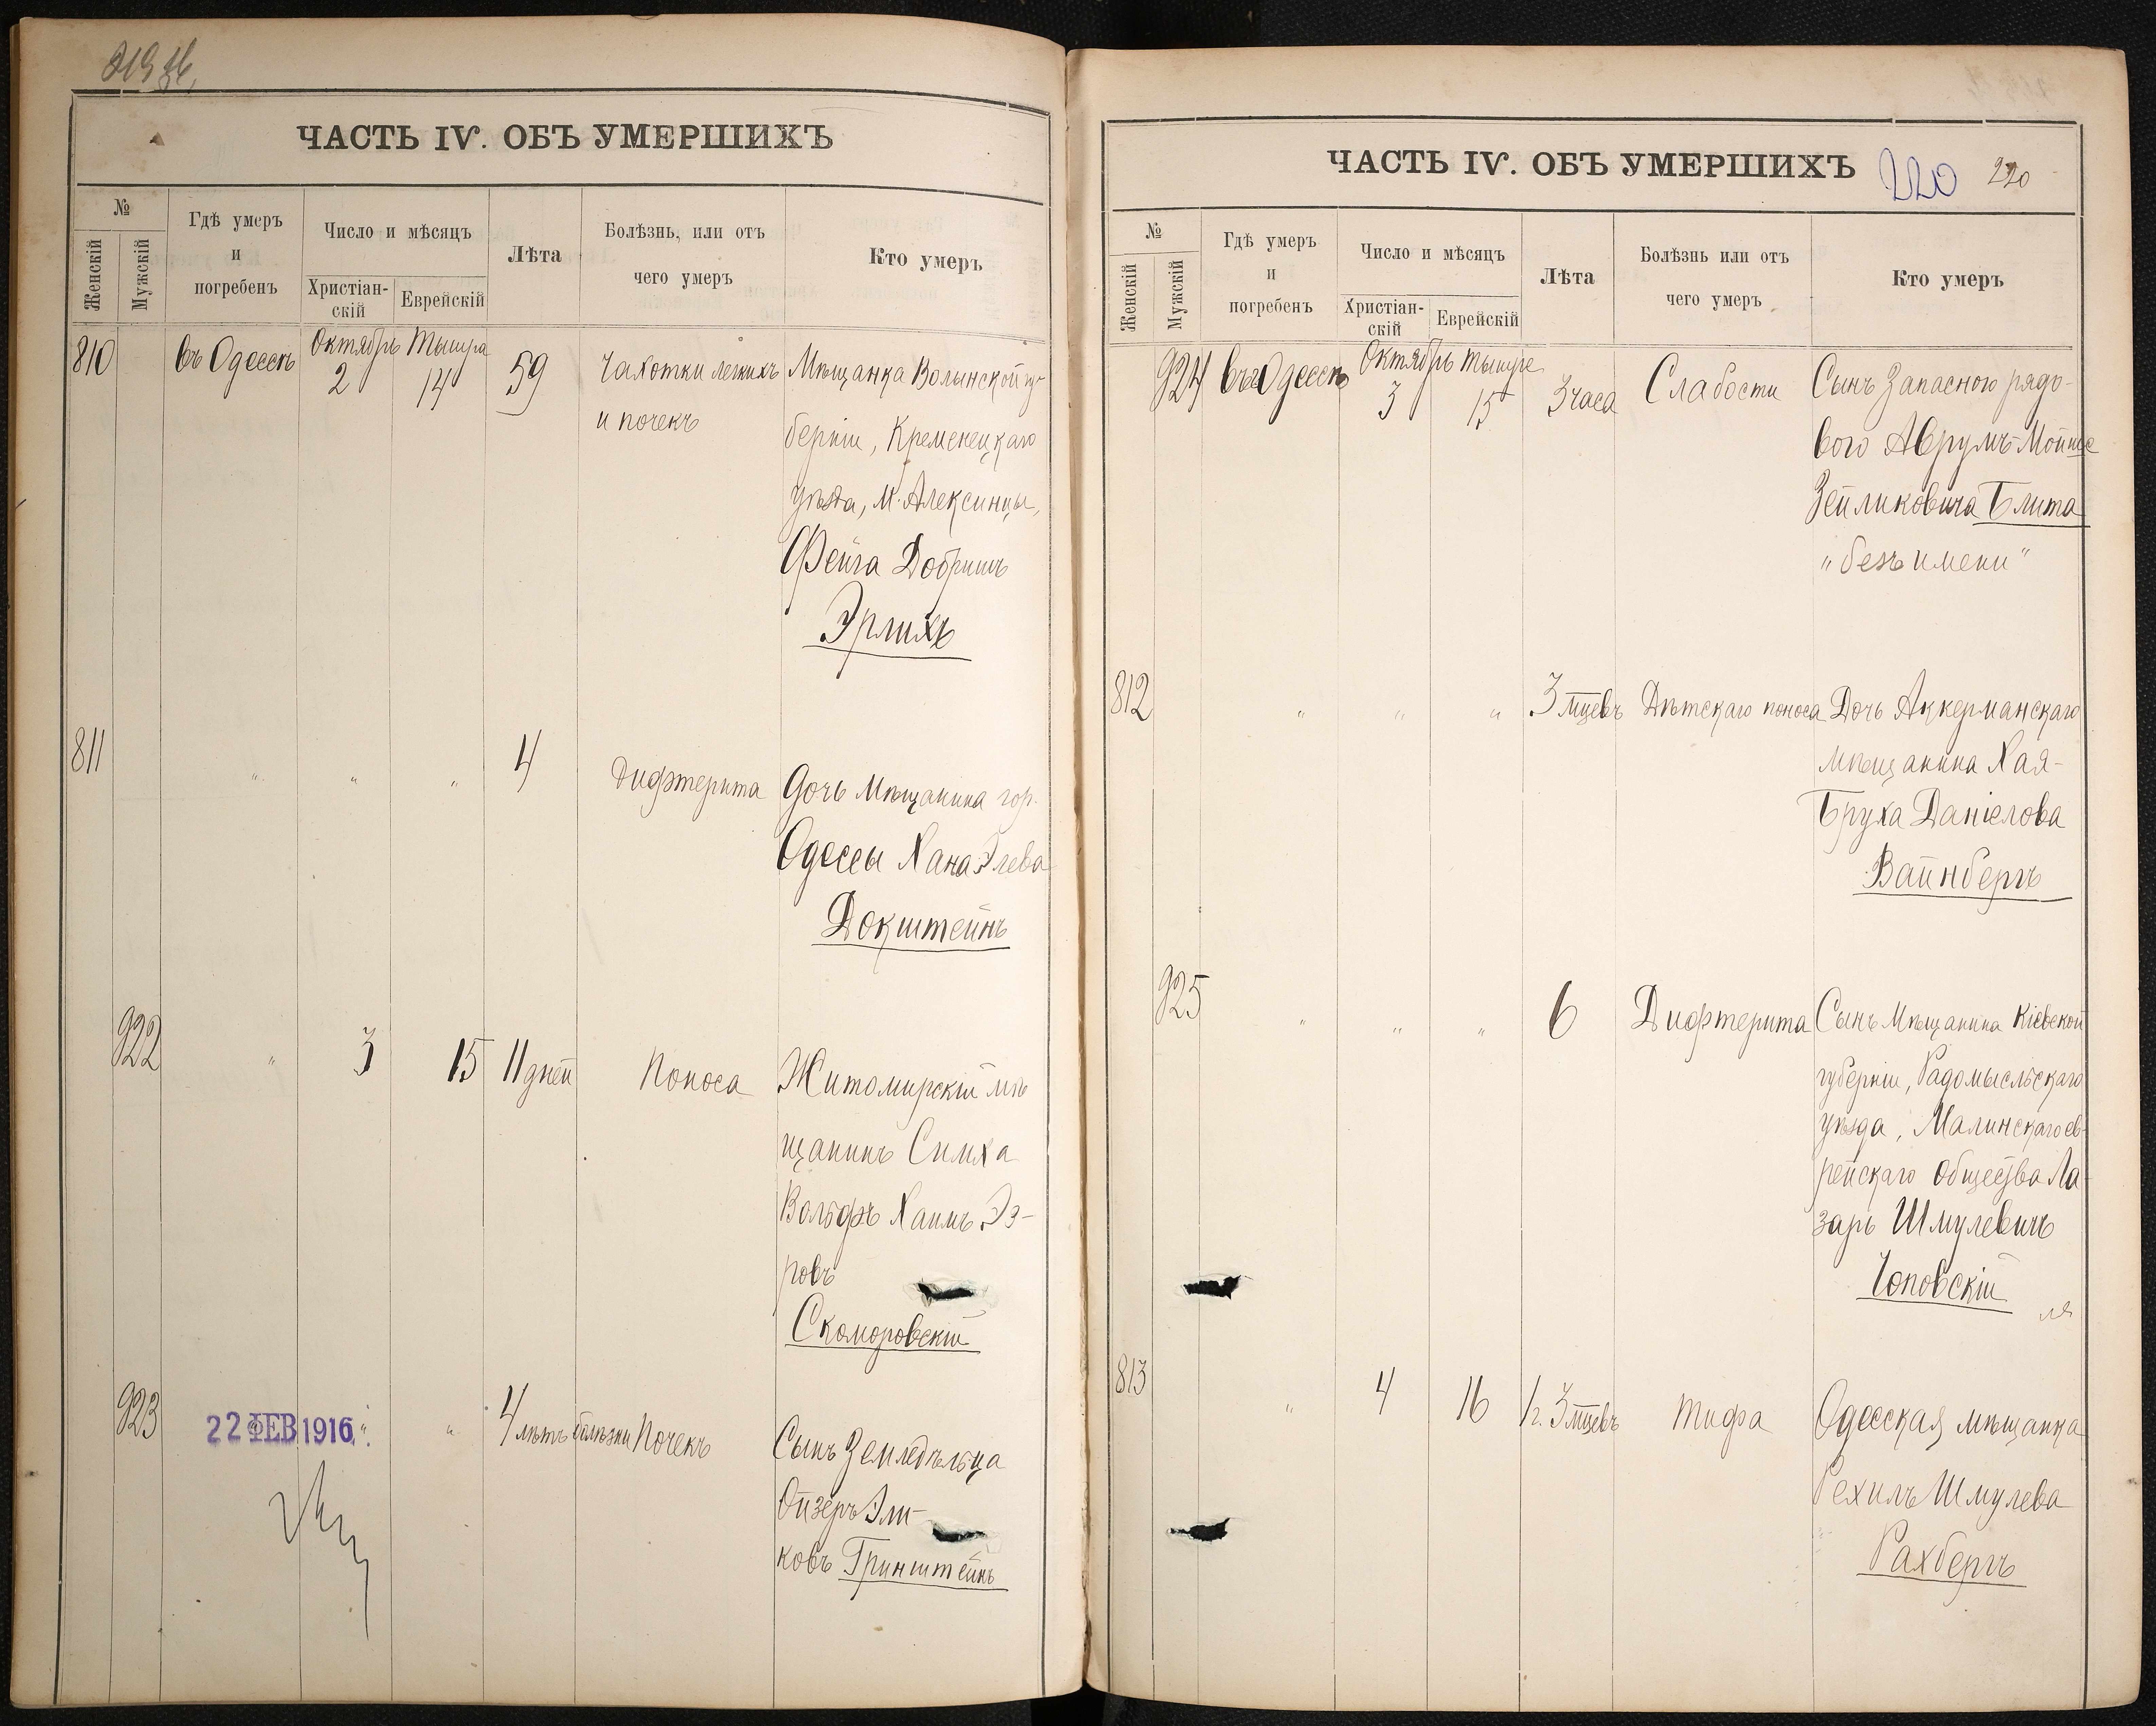 219 об.
ЧАСТЬ IV. ОБЪ УМЕРШИХЪ
№
Женскій
Мужскій
Гдѣ умеръ
и
погребенъ
Число и мѣсяцъ
Христіан-
скій
Еврейскій
Лѣта
Болѣзнь, или отъ
чего умеръ
Кто умеръ
810
въ Одессѣ
Октябрь
2
Тышра
14
59
Чахотки легкихъ
и почекъ
Мѣщанка Волынской гу-
берніи, Кременецкаго
уѣзда, м. Алексинцы,
Фейга Добришъ
Эрлихъ
811
" " "
4
Дифтерита
Дочь Мѣщанина гор.
Одессы Хана Элева
Докштейнъ
922
"
3
15
11 дней
Поноса
Житомирскій мѣ
щанинъ Симха
Вольфъ Хаимъ Эз-
ровъ
Скоморовскій
923
22 ФЕВ 1916
" "
4 лѣтъ
болѣзни Почекъ
Сынъ Земледѣльца
Ойзеръ Эли-
ковъ Гринштейнъ
ЧАСТЬ IV. ОБЪ УМЕРШИХЪ
220 220
№
Женскій
Мужскій
Гдѣ умеръ
и
погребенъ
Число и мѣсяцъ
Христіан-
скій
Еврейскій
Лѣта
Болѣзнь или отъ
чего умеръ
Кто умеръ
924
въ Одессѣ
Октябрь
3
Тышре
15
3 часа
Слабости
Сынъ Запасного рядо-
вого Аврумъ-Мойше
Зейликовича Блита
"безъ имени"
812
" " "
3 мцевъ
Дѣтскаго поноса
Дочь Аккерманскаго
мѣщанина Хая-
Бруха Даніелова
Вайнбергъ
925
" " "
6
Дифтерита
Сынъ Мѣщанина Кіевской
губерніи, Радомысльскаго
уѣзда, Малинскаго ев-
рейскаго Общества Ла-
зарь Шмулевичъ
Чоповскій
813
"
4
16
1 г. 3 мцевъ
Тифа
Одесская мѣщанка
Рехиль Шмулева
Рахбергъ